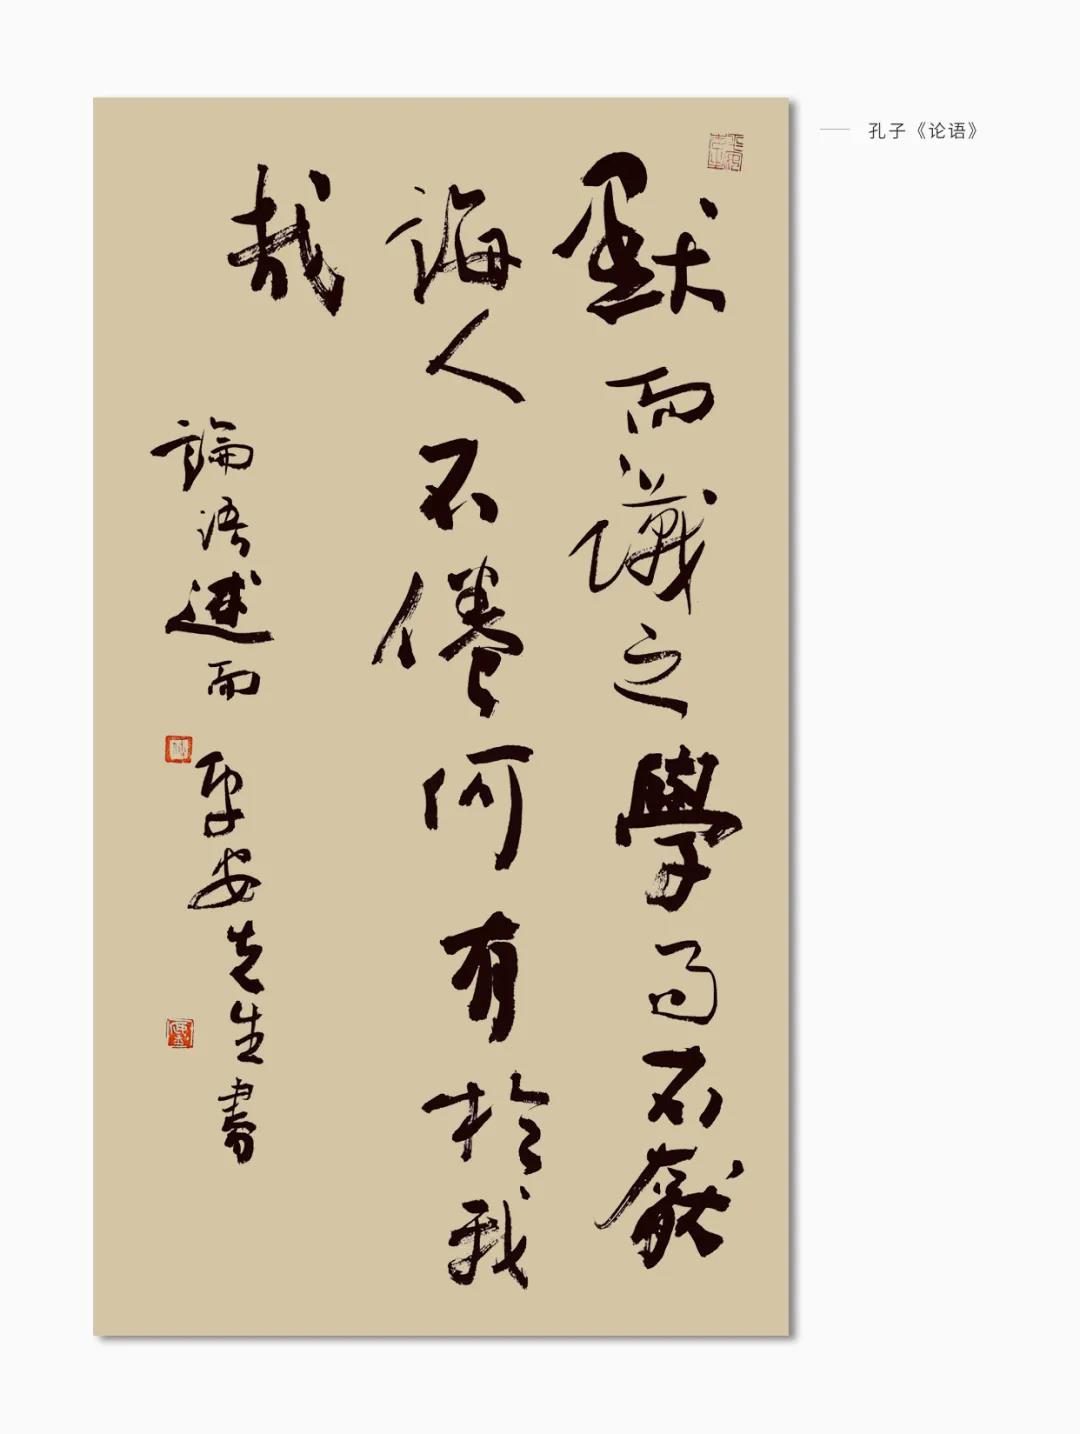 孔子《论语》
默而識之學而不厭
誨人不倦何有於我
哉
論語述而
平安先生書